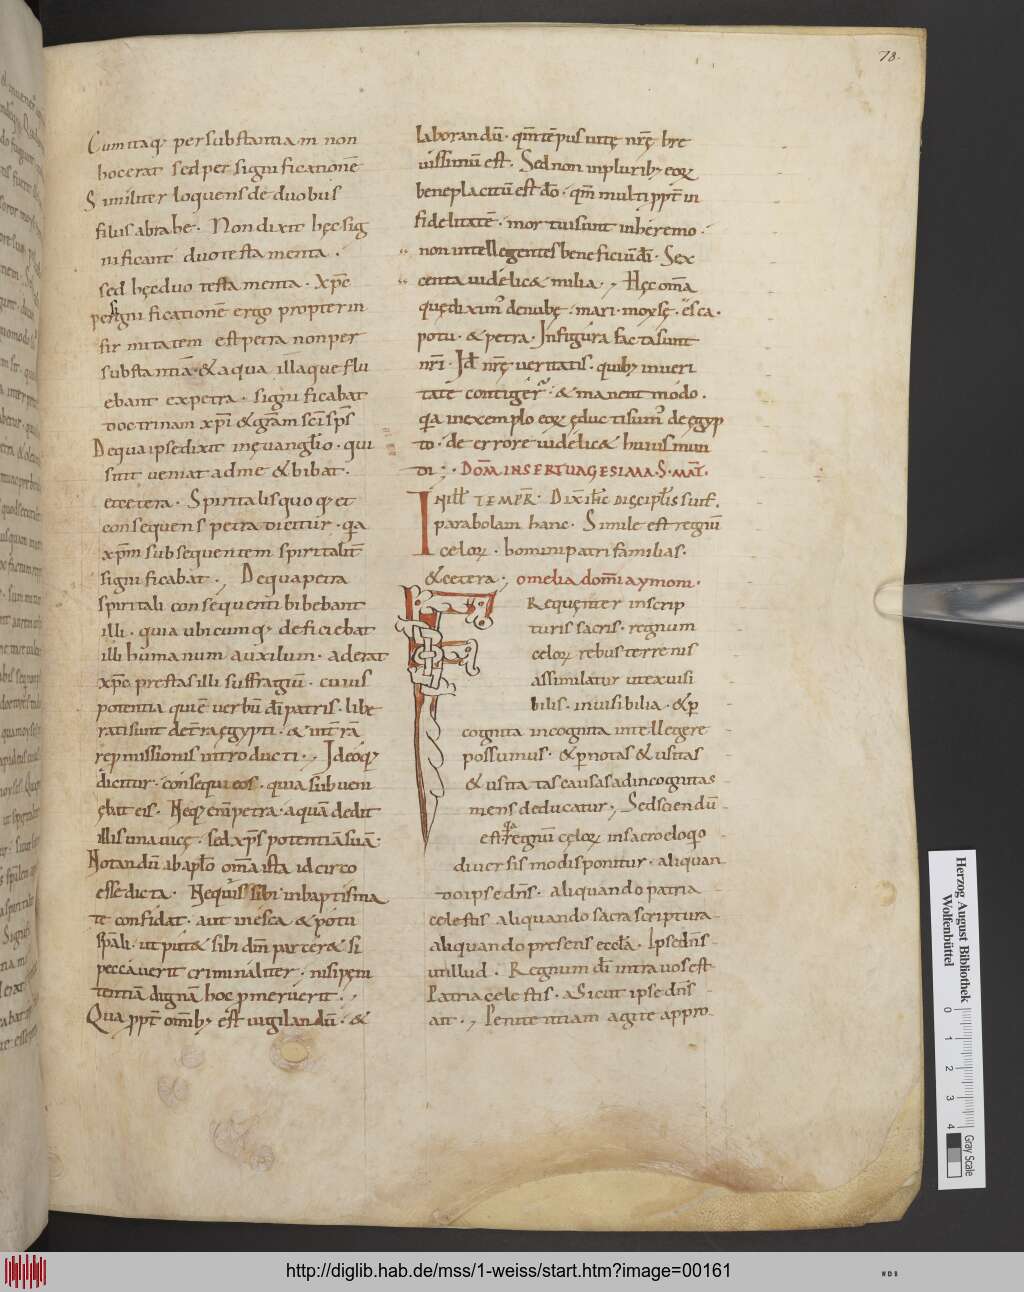 78.
Cumitaq; per substantiam non
hoc erat sed per significationē
Similiter loquens de duobus
filiis abrahę. Non dixit hęc sig
nificant duo testamenta.
sed hęc duo testamenta. Xp̄c
per significationē ergo propter in
firmitatem est petra non per
substantiā. & aqua illa que flu
ebant ex petra. significabat
doctrinam xp̄i & gr̄am sc̄i sp̄s
De qua ipse dixit in ęvanglio. qui
sitit veniat ad me & bibat.
et cetera. Spiritalis quoq; et
consequens petra dicitur. qa
xp̄m subsequentem spiritalit̄
significabat. De qua petra
spiritali consequenti bibebant
illi. quia ubicumq; deficiebat
illi humanum auxilium. aderat
xp̄c prestas illi suffragiū. cuius
potentia quiē verbū dī patris. libe
rati sunt de t̄ra ęgypti. & in t̄rā
repmissionis introducti. Ideoq;
dicitur. consequi eos. quia subveni
ębat eis. Neq; enī petra. aquā dedit
illis una vice. sed xp̄s potentiā suā.
Notandū ab aplo om̄a ista idcirco
esse dicta. Nequis sibi in baptisma
te confidat. aut in esca & potu
sp̄ali. ut put& sibi dm̄ parcere & si
peccaverit criminaliter. nisi pęni
tentiā dignā hoc pmeruerit.
Qua ppt̄ omīb; est vigilandū. &
laborandū. qm̄ tēpus vitę nr̄ę bre
vissimū est. Sed non in plurib; eoꝝ
beneplacitū est dō. qm̄ multi ppt̄ in
fidelitatē. mortui sunt in heremo.
non intellegentes beneficiū dī. Sex
centa videlic& milia. Hęc om̄a
quę diximꝰ de nubę. mari. moysę. ęsca.
potu. & petra. In figura facta sunt
nr̄i. Id nr̄ę veritatis. quib; in veri
tate contiger̄. & manent modo.
qa in exemplo eoꝝ ęducti sumꝰ de ęgyp
to. de errore videlic& huius mun
di. DOM̄. IN SEPTUAGESIMA. S. MAT̄.
IN ILL TEMPR̄. Dix̄ ih̄c discipulis suis.
parabolam hanc. Simile est regnū
celoꝝ. homini patri familias.
& cetera. omelia domni aymoni.
Frequenter in scrip
turis sacris. regnum
celoꝝ rebus terrenis
assimilatur ut ex visi
bilis. invisibilia. & p
cognita incognita intellegere
possumus. & p notas & visitas
& usita tas causas ad incognitas
mens deducatur. Sed sciendū
est. qa regnū cęloꝝ in sacro eloqo
diversis modis ponitur. aliquan
do ipse dn̄s. aliquando patria
celestis aliquando sacra scriptura
aliquando presens eccla. Ipse dn̄s
ut illud. Regnum dī intra vos est
Patria celestis. Sicut ipse dn̄s
ait. Penitentiam agite appro
Herzog August Bibliothek
Wolfenbüttel
0 1 2 3 4
Gray Scale
http://diglib.hab.de/mss/1-weiss/start.htm?image=00161